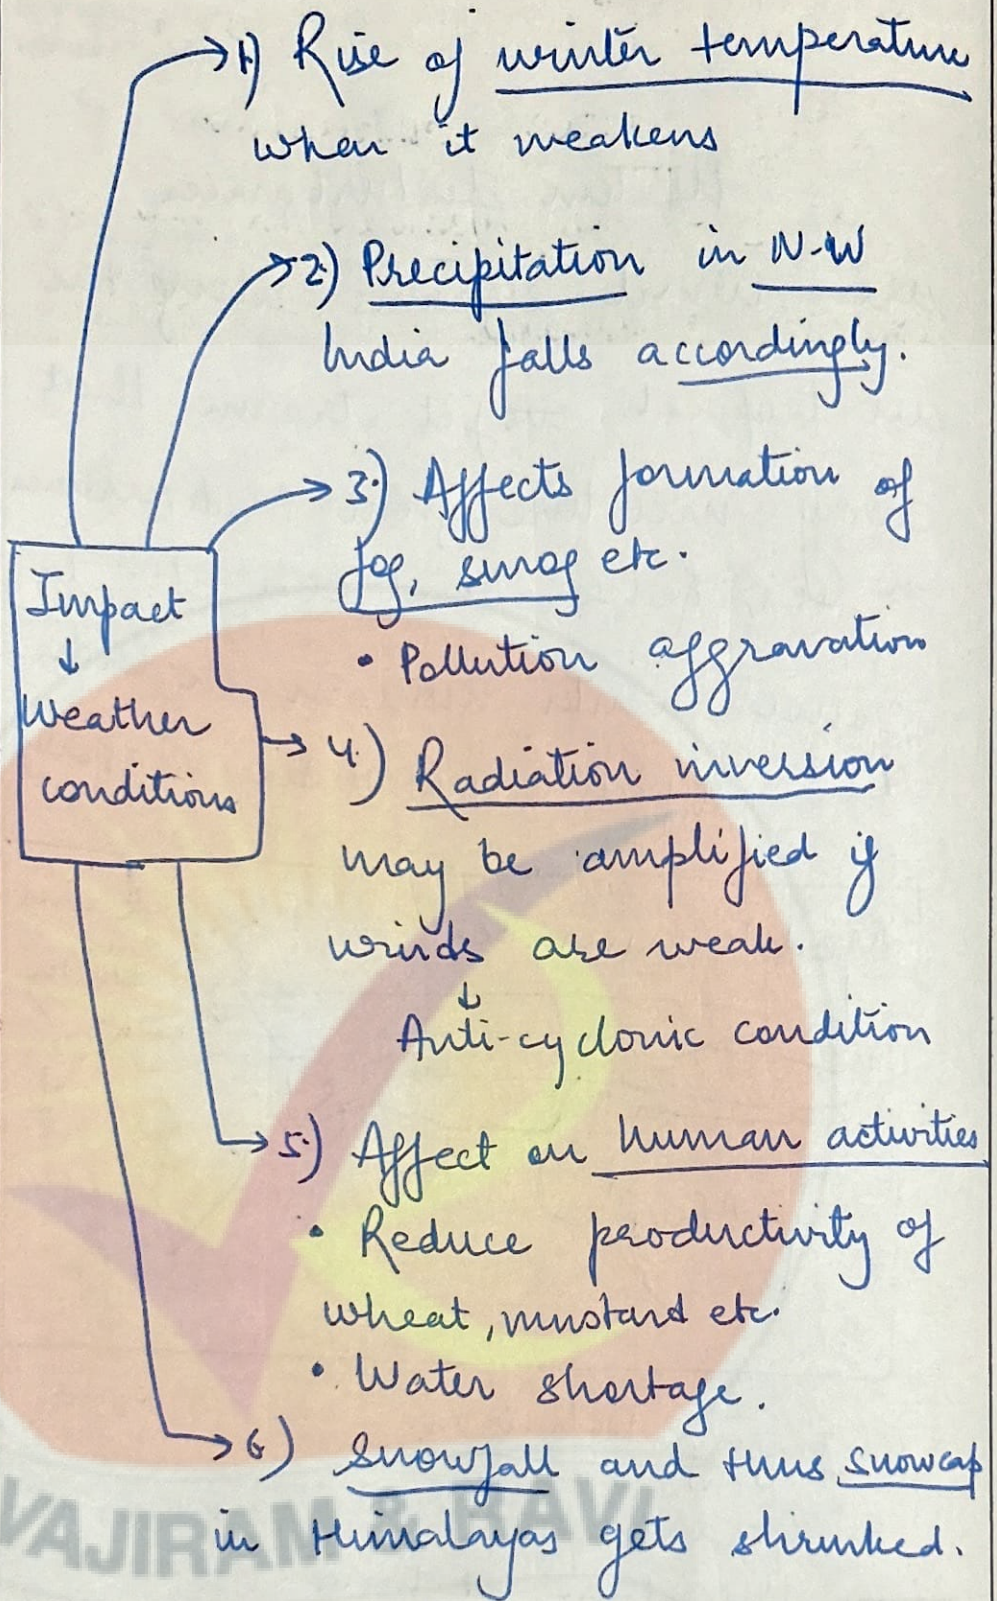 1) Rise of winter temperature
when it weakens
2) Precipitation in N-W
India falls accordingly.
3.) Affects formation of
fog, smog etc.
• Pollution aggravation
Impact
↓
Weather
conditions
4.) Radiation inversion
may be amplified if
winds are weak.
↓
Anti-cyclonic condition
5.) Affect on human activities
• Reduce productivity of
wheat, mustard etc.
• Water shortage.
6) Snowfall and thus snowcap
in Himalayas gets shrinked.
VAJIRAM & RAVI